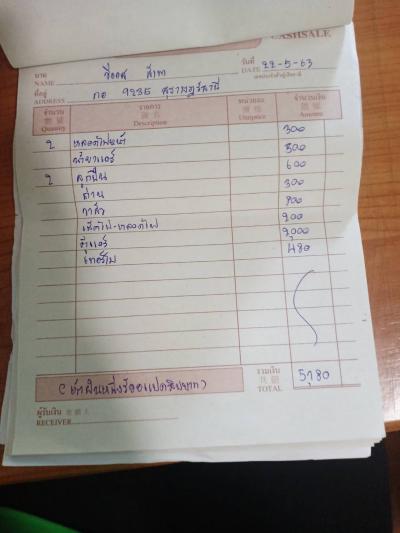 CASHSALE
นาม
NAME
วันที่
DATE 22-5-63
เลขประจำตัวผู้เสียภาษี
ที่อยู่
ADDRESS กอ 9235 สุราษฎร์ธานี
จำนวน รายการ หน่วยละ จำนวนเงิน
數量 貨名 價格 銀碼
Quantity Description Unitprice Amount
2 หลอดไฟหน้า 300
น้ำยาแอร์ 300
2 ลูกปืน 600
ถ่าน 300
900
สวิตไฟ-หลอดไฟ 900
ตู้แอร์ 2,000
เทอร์โม 480
(ห้าพันหนึ่งร้อยแปดสิบบาท)
รวมเงิน
共銀
TOTAL 5180
ผู้รับเงิน 收銀人
RECEIVER